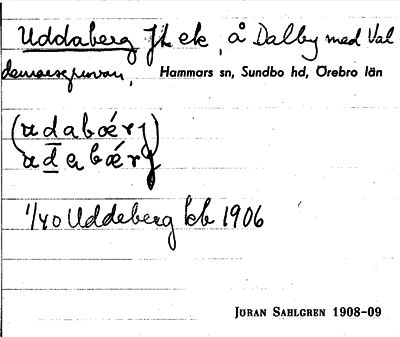 Uddaberg jh ek, å Dalby med Val
demarsgruvan, Hammars sn, Sundbo hd, Örebro län
(udabǽrj)
udabǽrj
1/40 Uddeberg kb 1906
JÖRAN SAHLGREN 1908–09